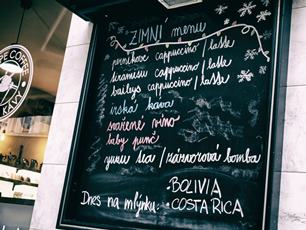 ZIMNÍ menu
perníkové cappuccino / latte
tiramisu cappuccino / latte
baileys cappuccino / latte
irská kava
svařené víno
baby punč
yunu tea / zázvorová bomba
Dnes na mlýnku: • BOLIVIA
• COSTA RICA
COFFEE